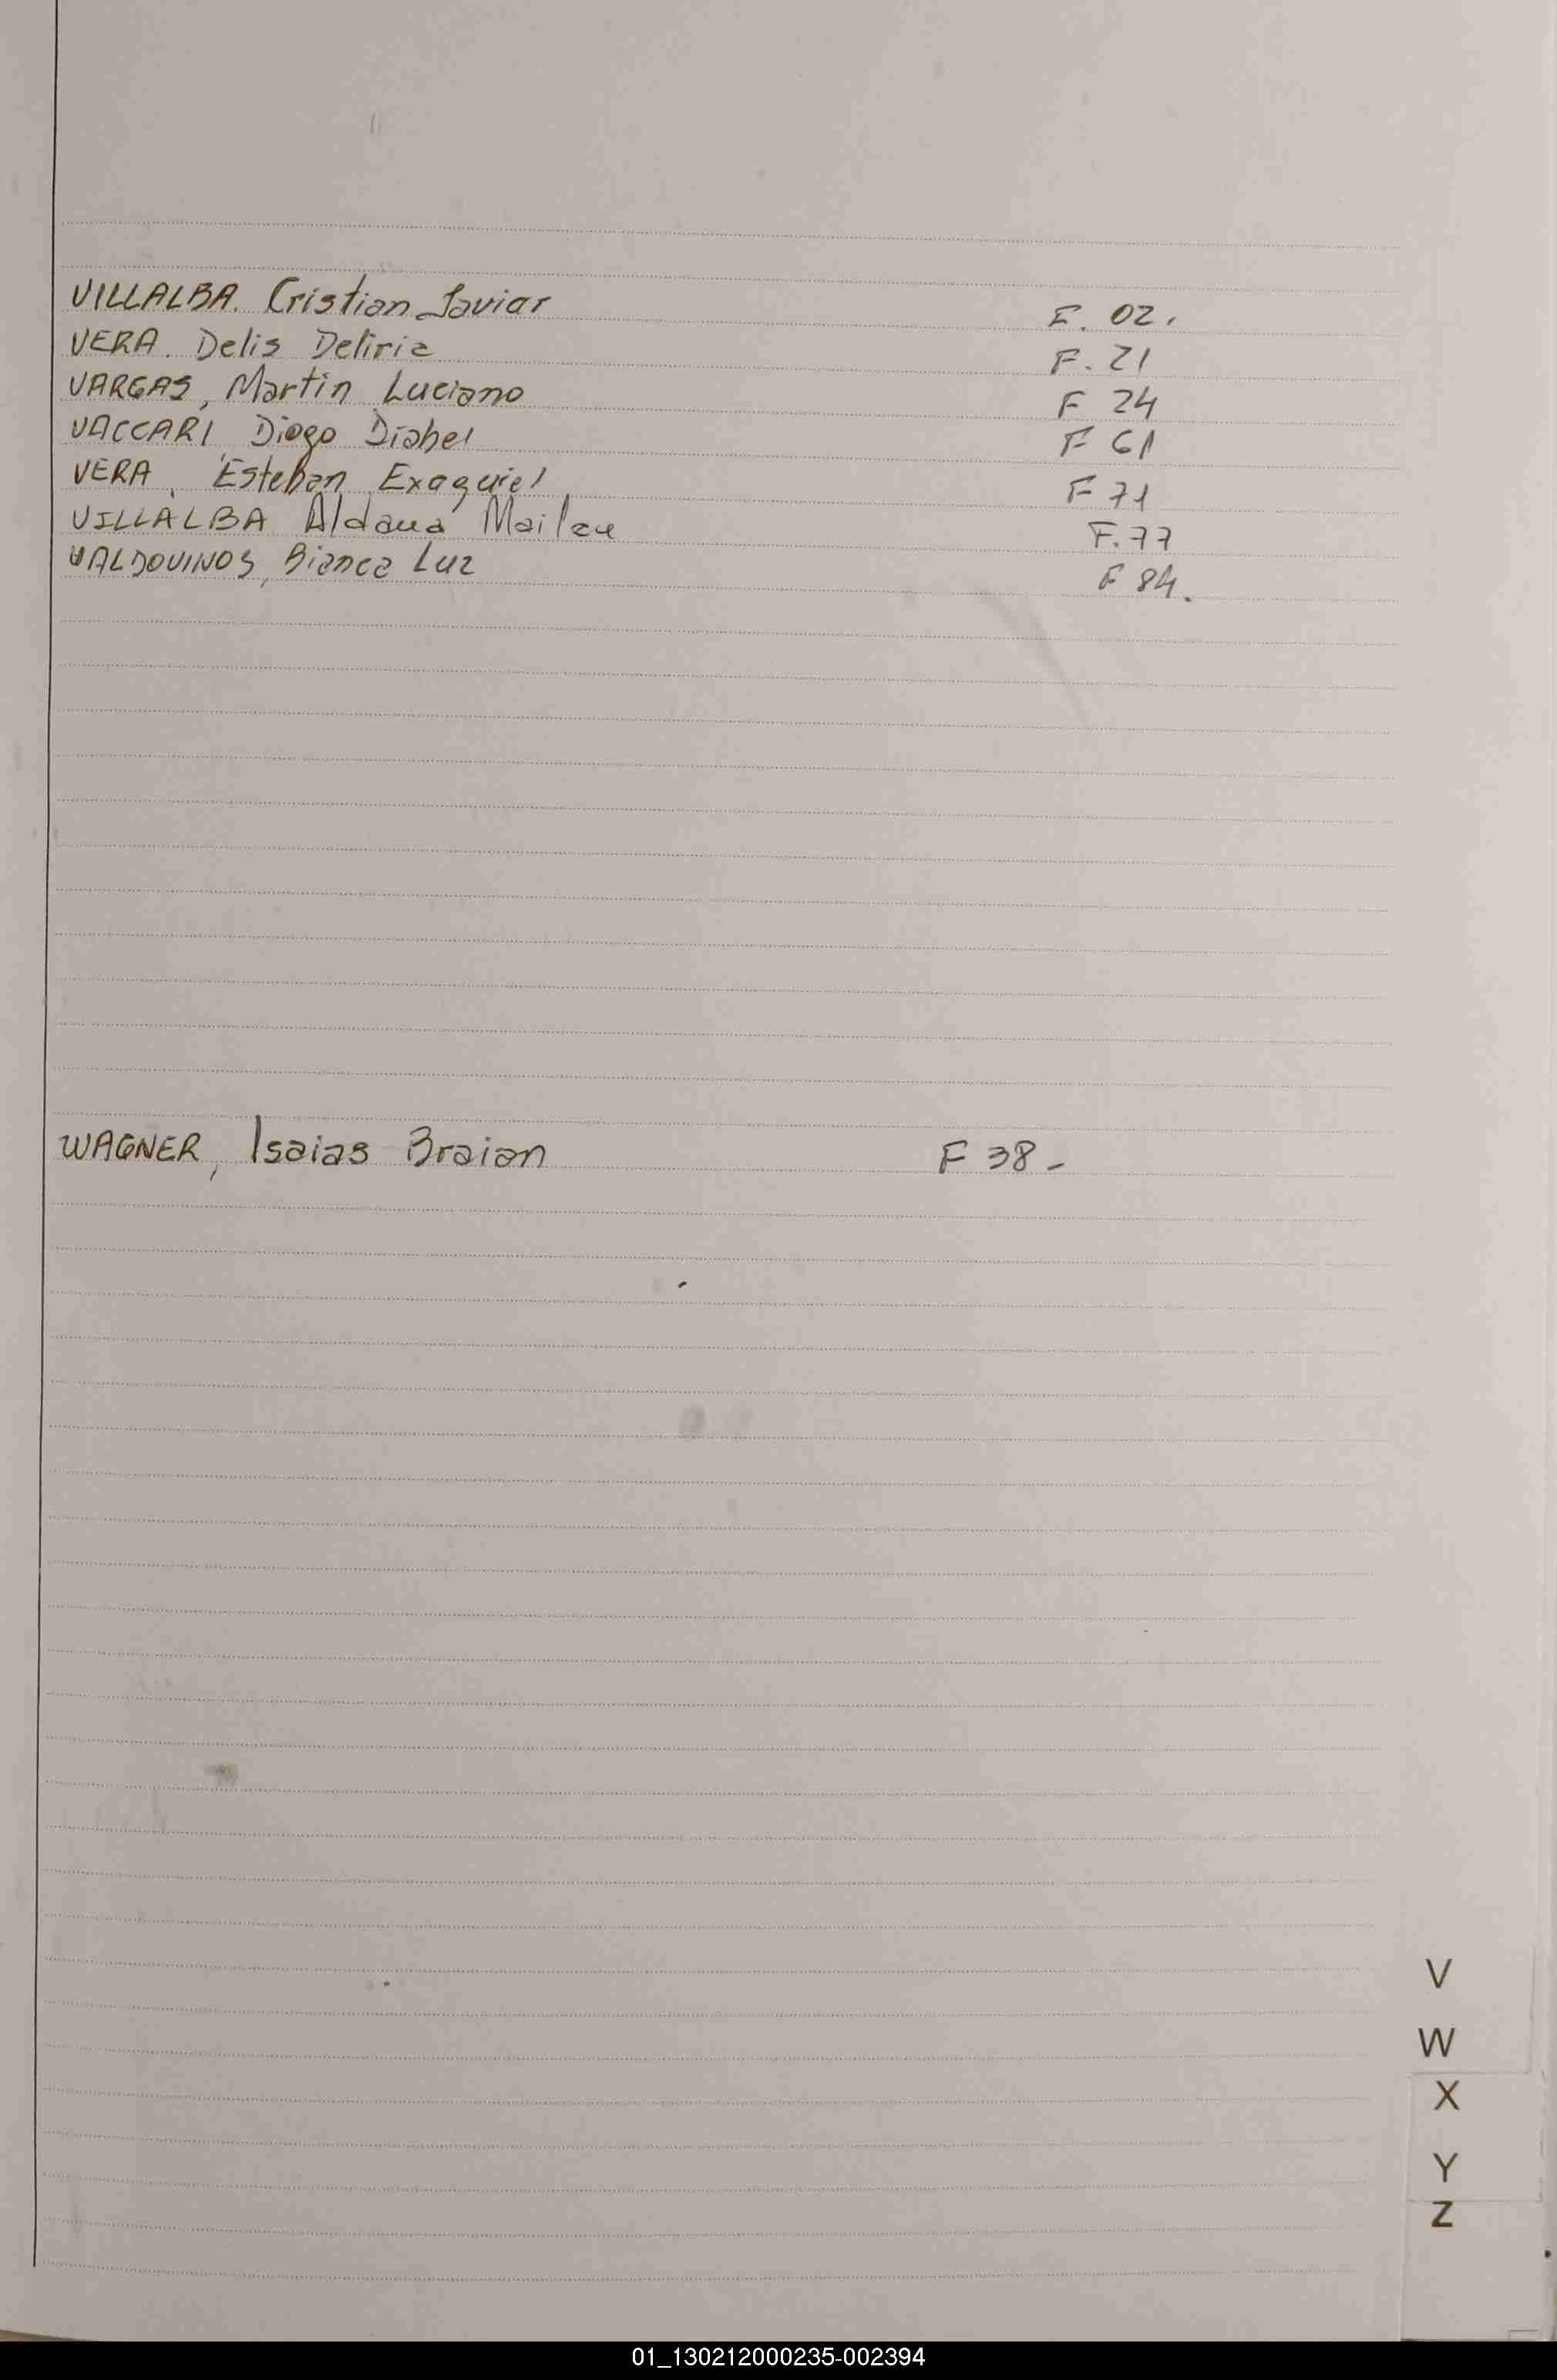 VILLALBA. Cristian Javier F. 02.
VERA. Delis Deliria F. 21
VARGAS, Martin Luciano F 24
VACCARI Diego F 61
VERA, Esteban Exequiel F 71
VILLALBA Aldana Mailen F. 77
VALDOVINOS, Bianca Luz F 84.
WAGNER, Isaias Braian F 38-
V
W
X
Y
Z
01_130212000235-002394